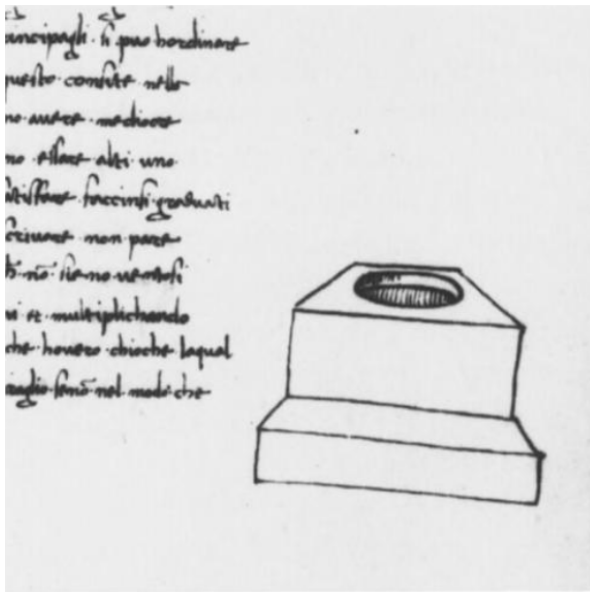 principagli · si puo hordinare
questo consiste nelle
no avere · mediocre
no essare · alti · uno
faccinsi graduati
scrivare · non pare
nō · sieno ventosi
et · multiplichando
che · hovero · chioche laqual
senō nel modo che